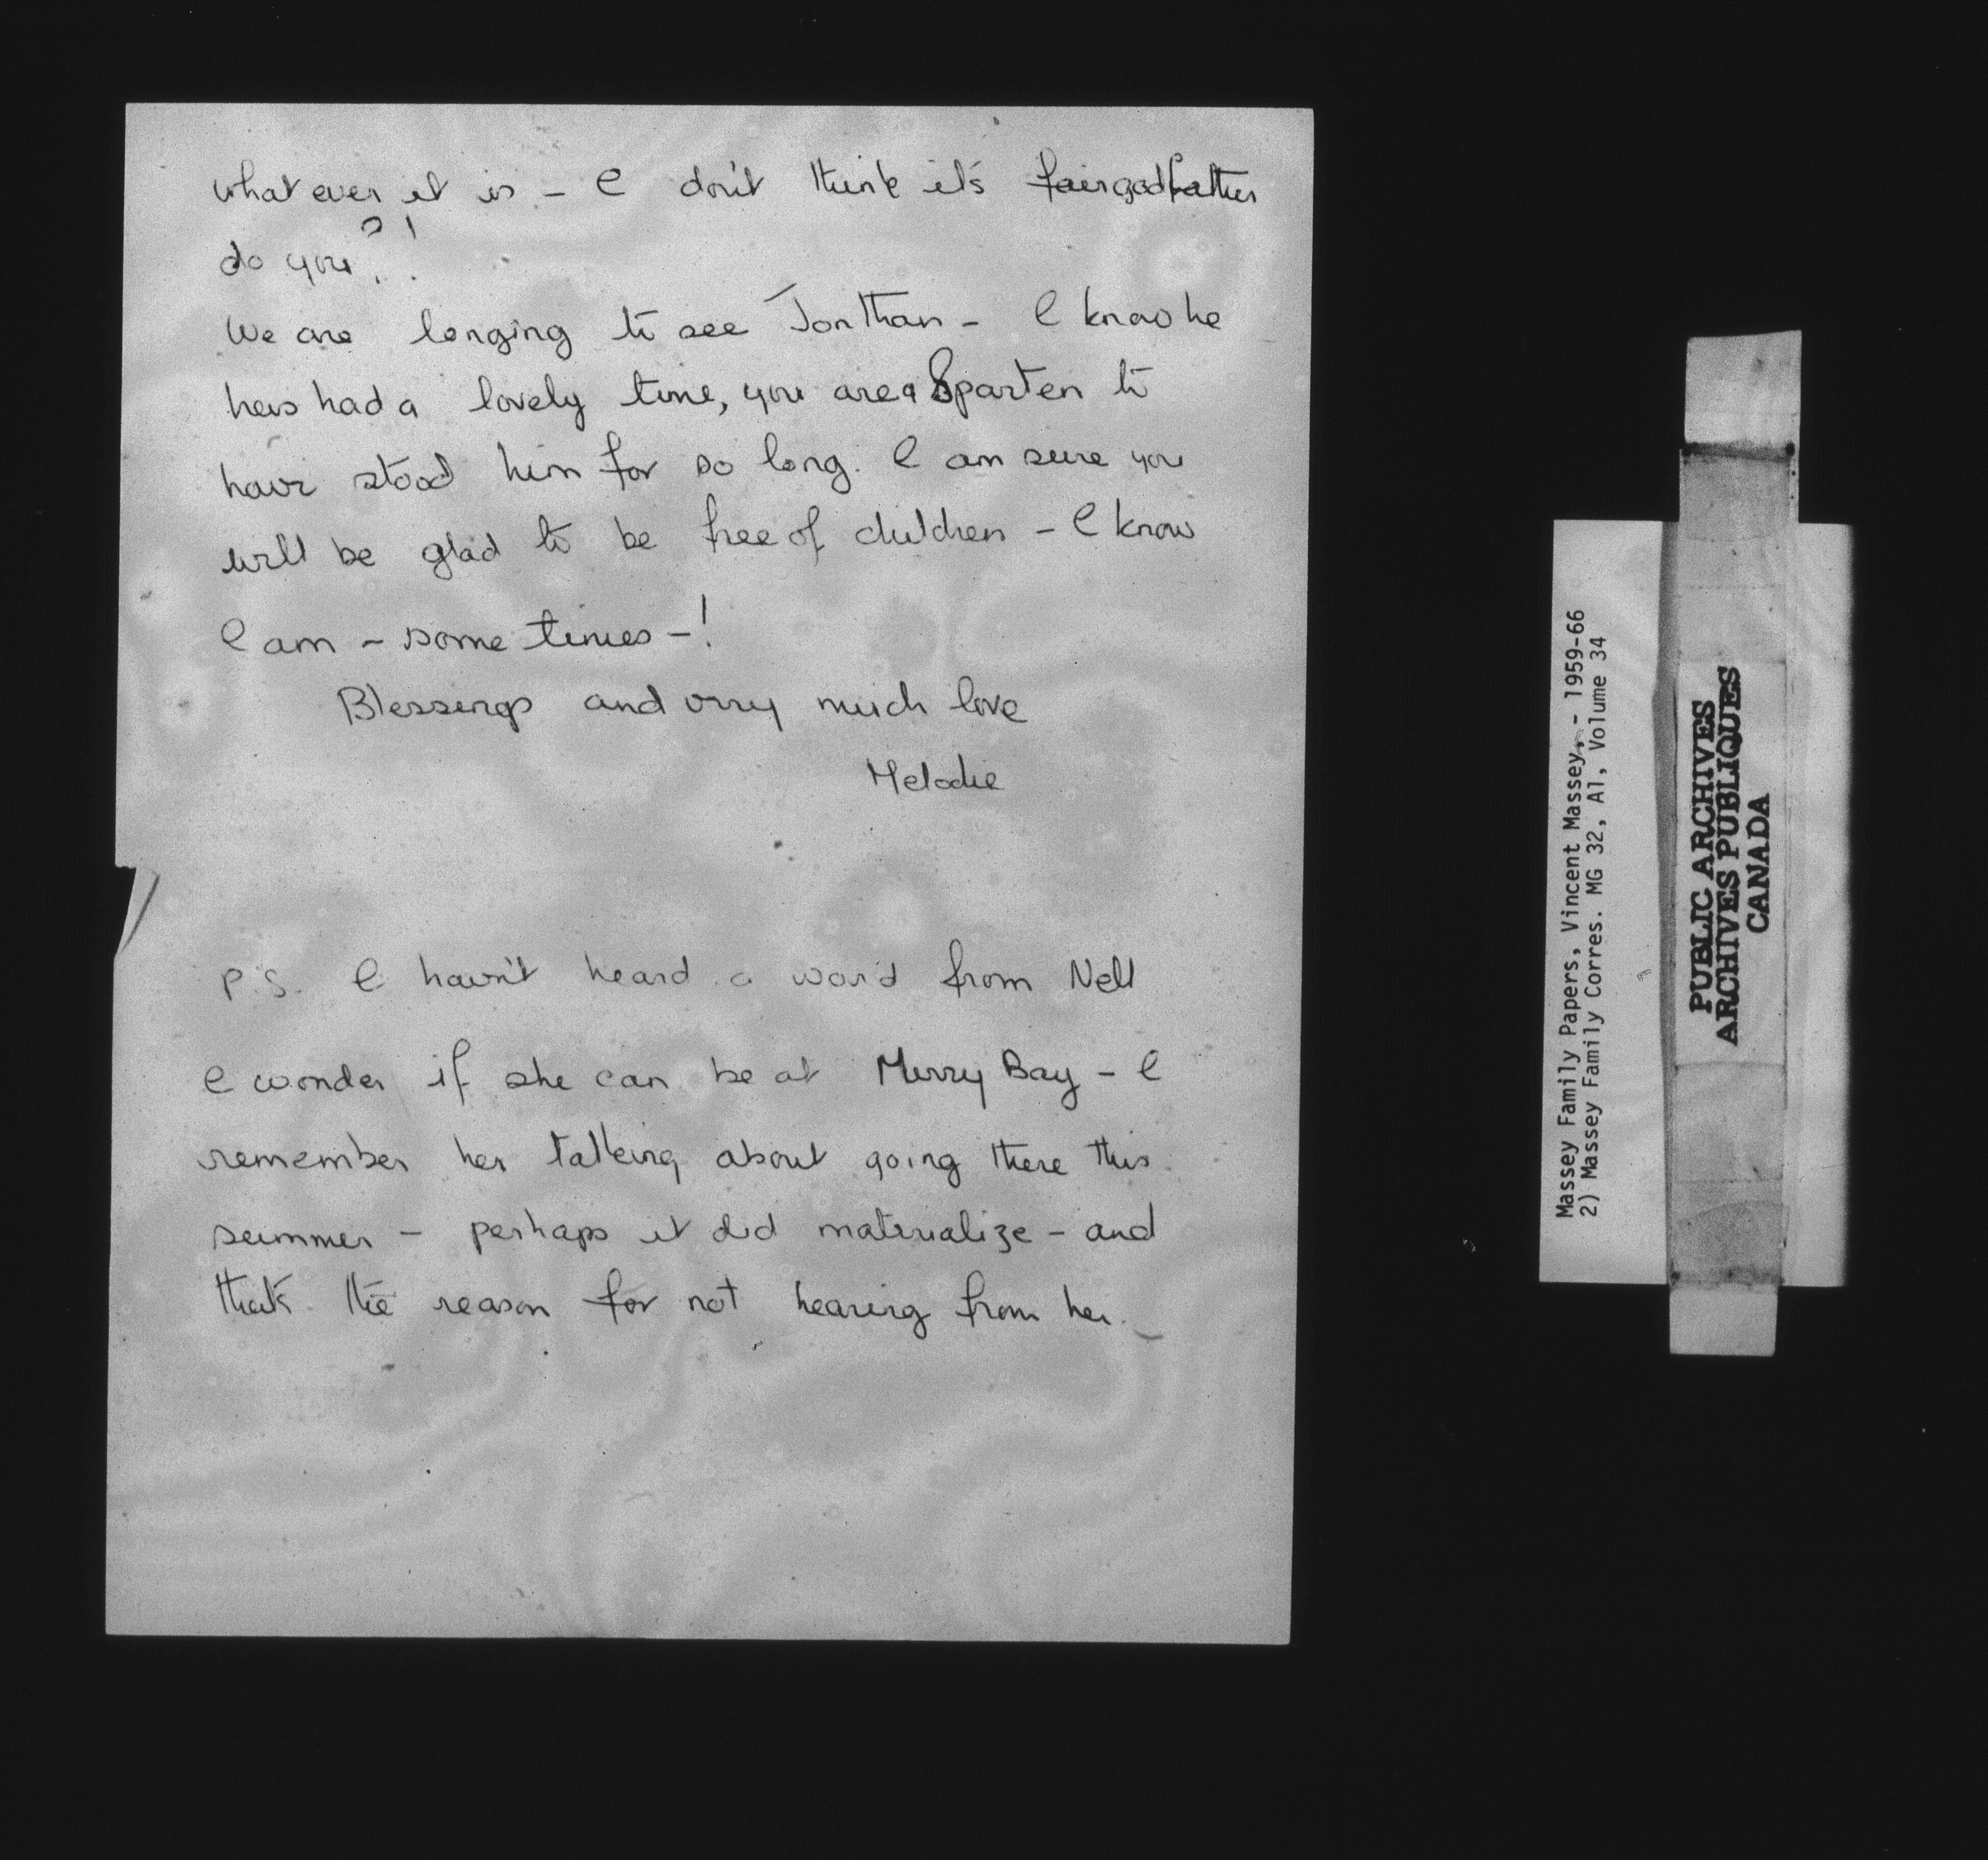 what ever it is - I don't think it's fair godfather
do you?!
We are longing to see Jonthan - I know he
has had a lovely time, you are a Sparten to
have stood him for so long. I am sure you
will be glad to be free of children - I know
I am - some times -!
Blessings and very much love
Melodie
P.S. I havn't heard a word from Nell
I wonder if she can be at Murry Bay - I
remember her talking about going there this
summer - perhaps it did materialize - and
that's the reason for not hearing from her.
Massey Family Papers, Vincent Massey, - 1959-66
2) Massey Family Corres. MG 32, A1, Volume 34
PUBLIC ARCHIVES
ARCHIVES PUBLIQUES
CANADA